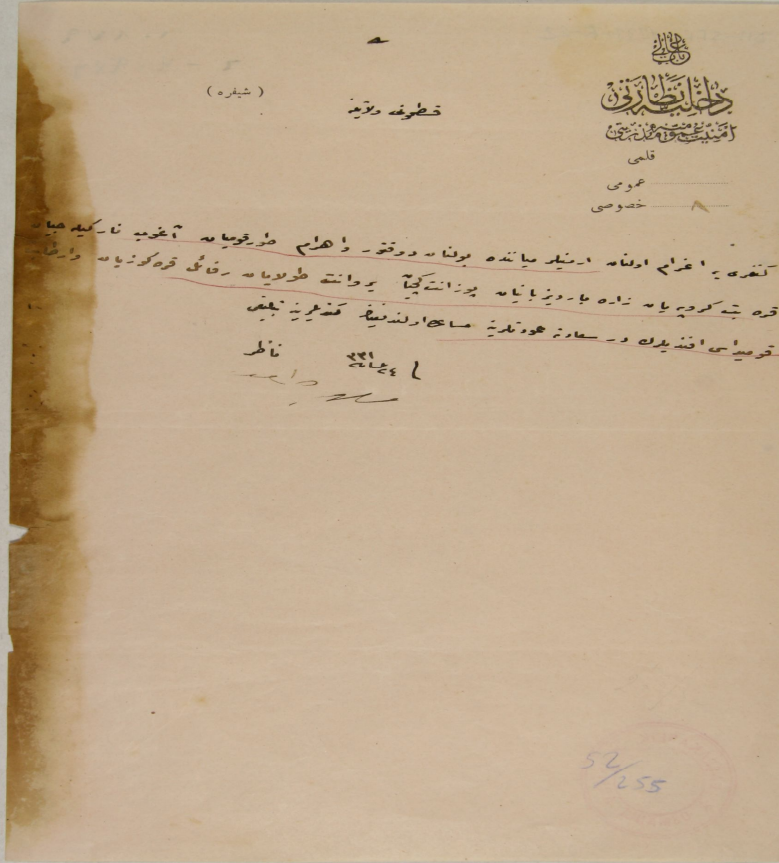 باب عالی
داخلیه نظارتی
امنیت عمومیه مدیریتی
قلمی
عمومی
خصوصی ٨
( شیفره )
قسطمونی ولایتنه
كنغری یه اعزام اولنان ارمنیلر میاننده بولنان دوقتور واهرام طورقومیان آغوب نارکیله جیان
قره بت کروپه یان زاره باردیزبانیان پوزانت کچیان یروانت طولایان رفائل قره کوزیان وارطابد
قومیداس افندیلرك در سعادته عودتلرینه مساعده اولندیغنك کندیلرینه تبلیغی
فی ٢٤ نیسان ٣٣١
ناظر
52/255